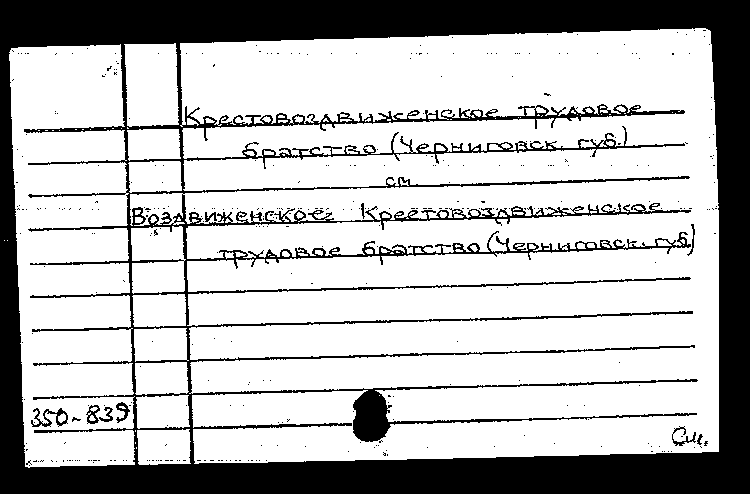 Крестовоздвиженское трудовое
братство (Черниговск. губ.)
см.
Воздвиженское. Крестовоздвиженское
трудовое братство (Черниговск. губ.)
350-839
См.